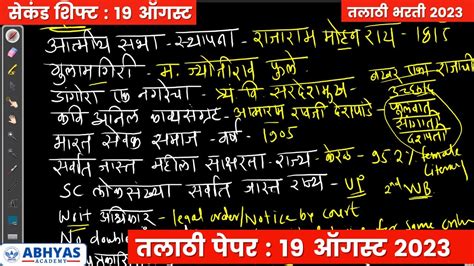 सेकंड शिफ्ट : 19 ऑगस्ट
तलाठी भरती 2023
आत्मीय सभा - स्थापना - राजाराम मोहन राय - 1815
गुलामगिरी - म. ज्योतीराव फुले
डांगोरा एक नगरीचा - त्र्यं वि सरदेशमुख
कवि अनिल काव्यसंग्रह - आत्माराम रावजी देशपांडे
फुलवात
सांगाती
दशपदी
भारत सेवक समाज - वर्ष - 1905
सर्वात जास्त महीला साक्षरता - राज्य - केरळ - 95.2% female
Literacy
SC लोकसंख्या सर्वात जास्त राज्य - UP 2nd WB
Writ अधिकार - legal order/Notice by court
No double for same
ABHYAS
ACADEMY
तलाठी पेपर : 19 ऑगस्ट 2023